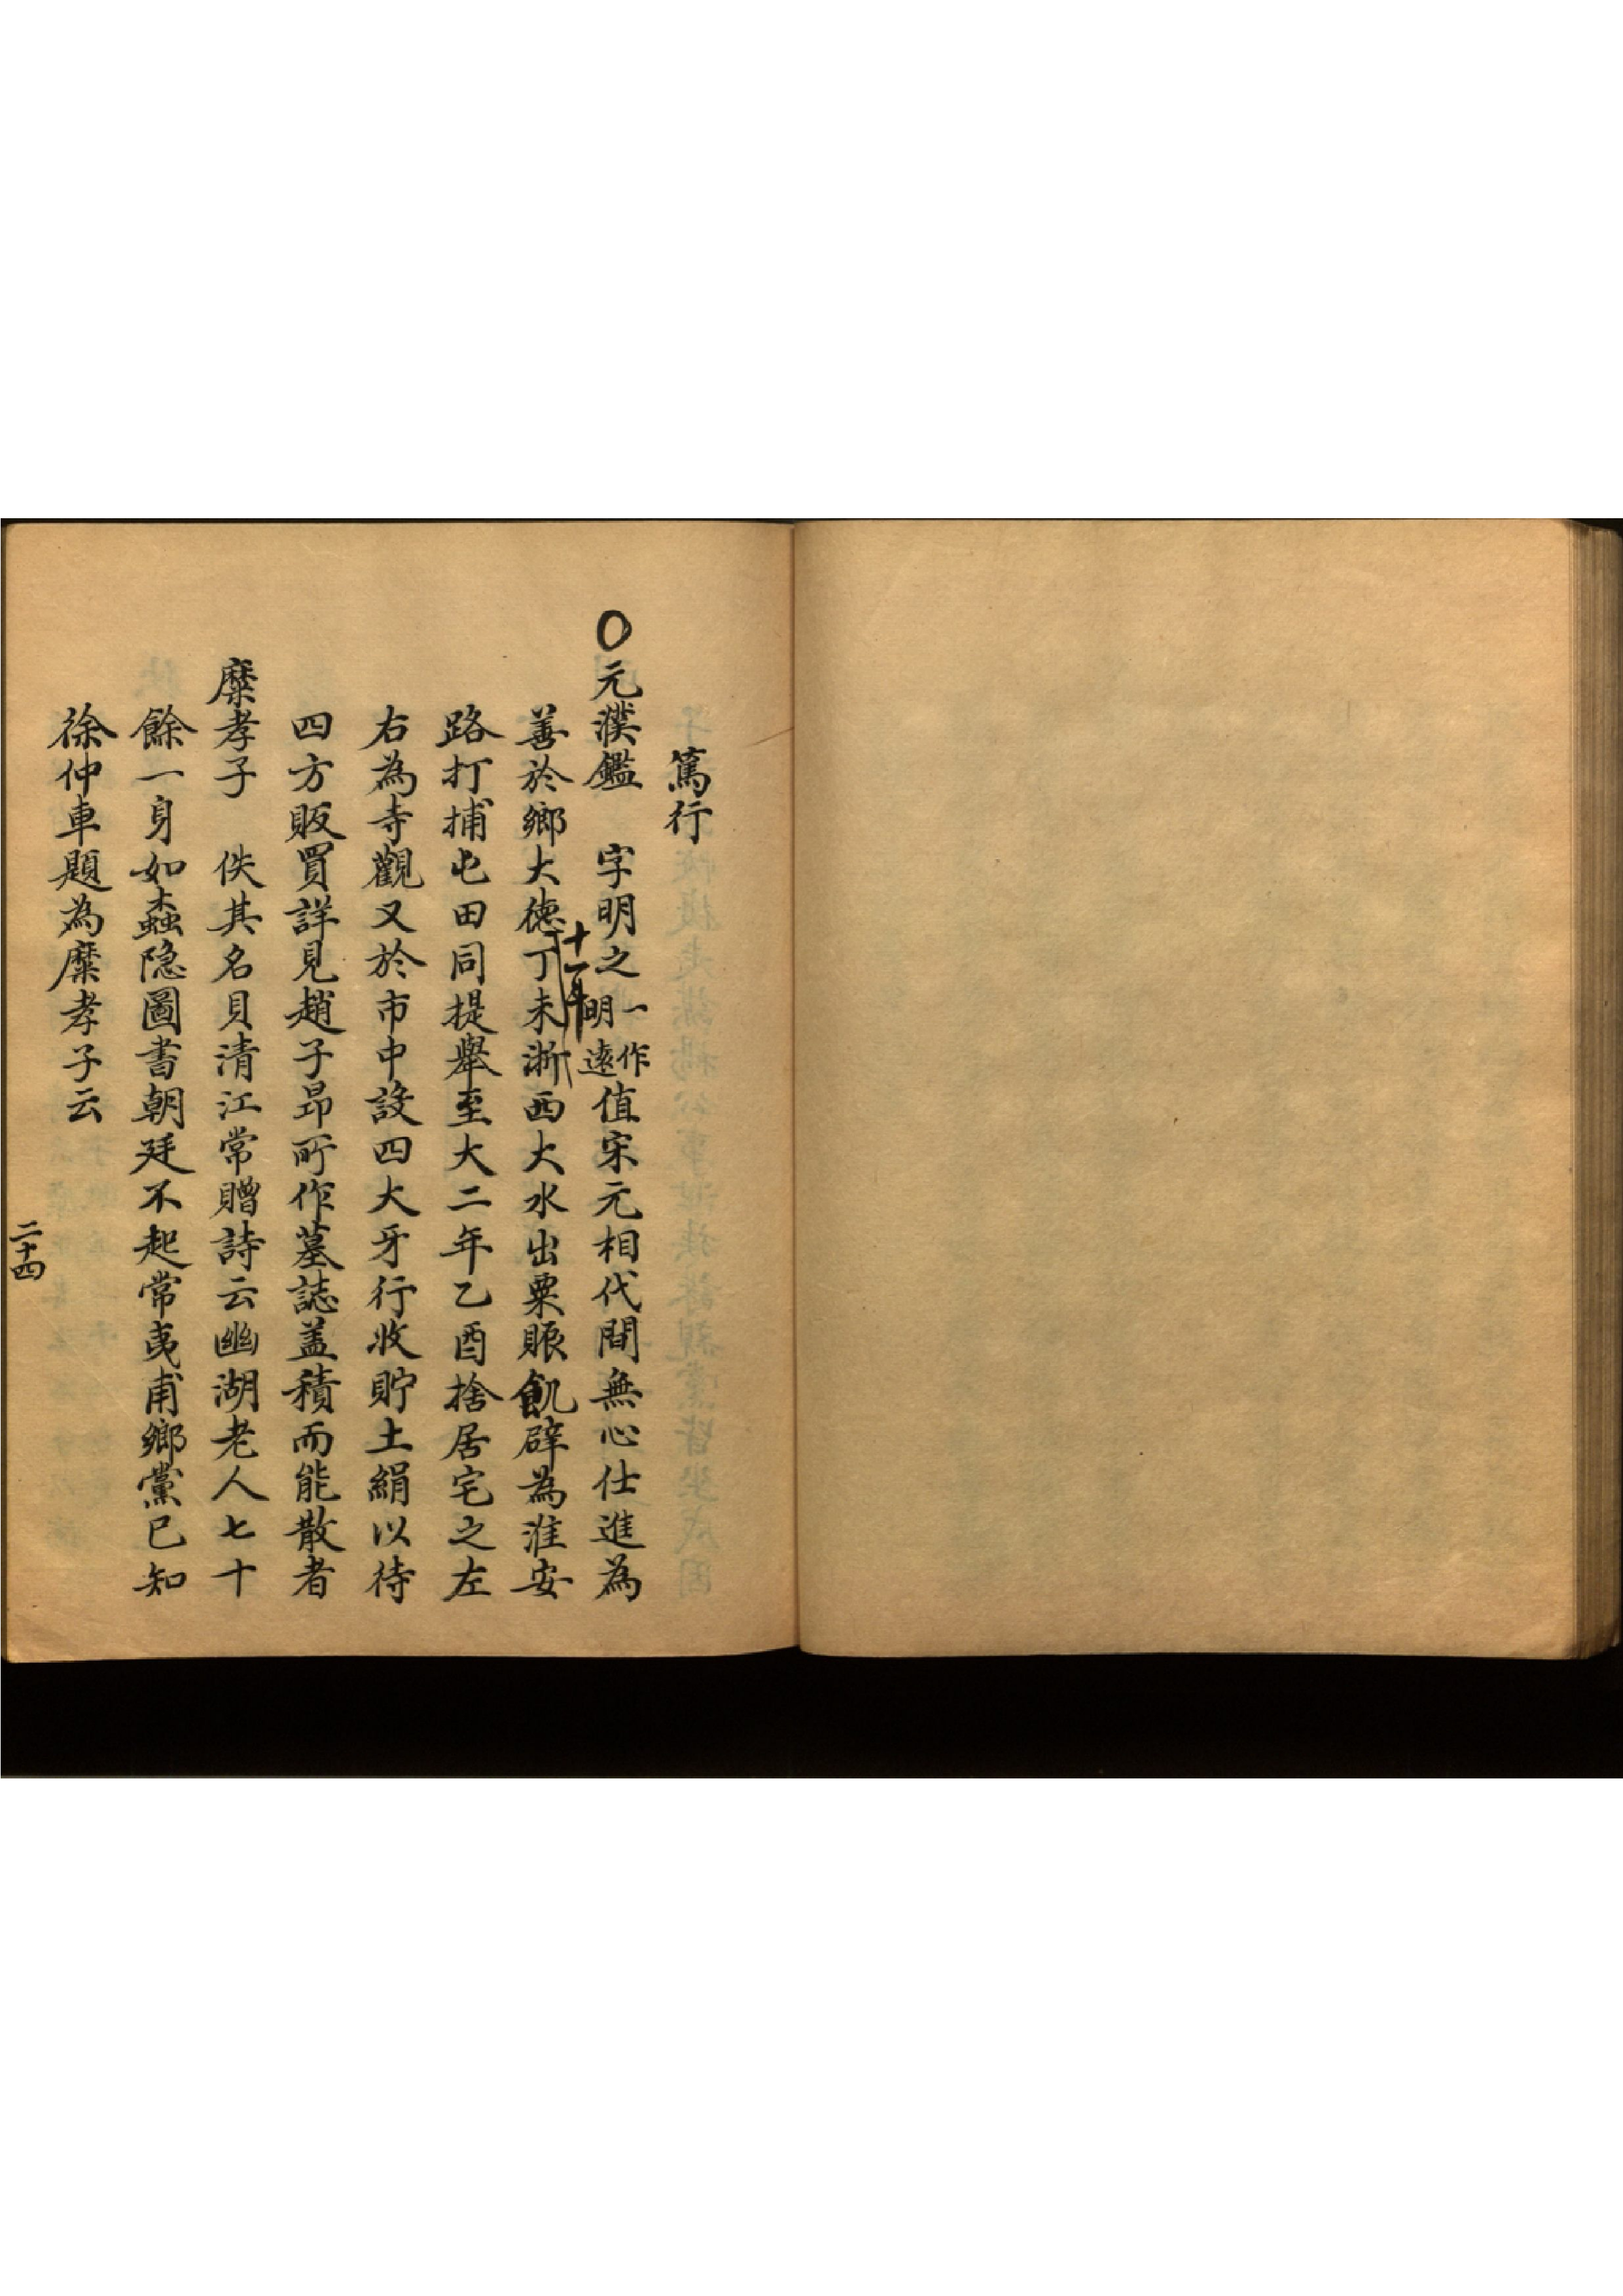 篤行
〇元濮鑑　字明之一作明遠值宋元相代間無心仕進為
善於鄉大德十一年丁未浙西大水出粟賑飢辟為淮安
路打捕屯田同提舉至大二年乙酉捨居宅之左
右為寺觀又於市中設四大牙行收貯土絹以待
四方販買詳見趙子昂所作墓誌盖積而能散者
糜孝子　佚其名貝清江常贈詩云幽湖老人七十
餘一身如蟲隐圖書朝廷不起常夷甫鄉黨已知
徐仲車題為糜孝子云
二十四